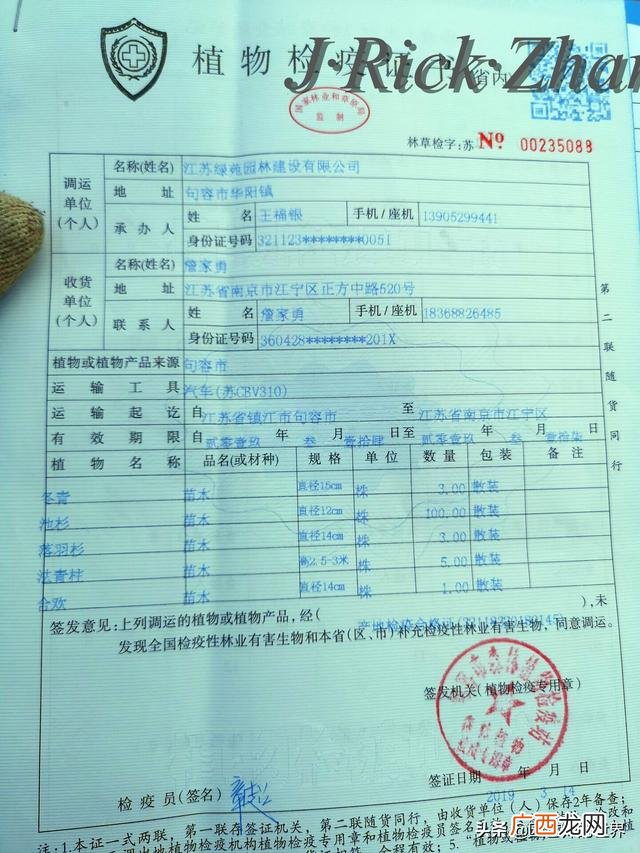 植物检疫证
J·Rick·Zhan
省内
国家林业和草原局
监制
林草检字:苏 № 00235088
调运单位(个人) 名称(姓名) 江苏绿苑园林建设有限公司
地址 句容市华阳镇
承办人 姓名 王楠银 手机/座机 13905299441
身份证号码 321123********0051
收货单位(个人) 名称(姓名) 詹家勇
地址 江苏省南京市江宁区正方中路520号
联系人 姓名 詹家勇 手机/座机 18368826485
身份证号码 360428********201X
植物或植物产品来源 句容市
运输工具 汽车(苏CBV310)
运输起讫 自 江苏省镇江市句容市 至 江苏省南京市江宁区
有效期限 自 贰零壹玖 年 叁 月 壹拾肆 日至 贰零壹玖 年 叁 月 壹拾柒 日
植物名称 品名(或材种) 规格 单位 数量 包装 备注
冬青 苗木 直径15cm 株 3.00 散装
池杉 苗木 直径12cm 株 100.00 散装
落羽杉 苗木 直径14cm 株 3.00 散装
法青柱 苗木 高2.5-3米 株 5.00 散装
合欢 苗木 直径14cm 株 1.00 散装
第二联随货同行
签发意见:上列调运的植物或植物产品,经( 产地检疫合格证 ),未
发现全国检疫性林业有害生物和本省(区、市)补充检疫性林业有害生物,同意调运。
签发机关(植物检疫专用章)
检疫员(签名)
签证日期 2019 年 3 月 14 日
注:1.本证一式两联,第一联存签证机关,第二联随货同行,由收货单位(人)保存2年备查;
植物检疫机构植物检疫专用章和植物检疫员签名
全程有效;5."植物或
头条
广西龙网